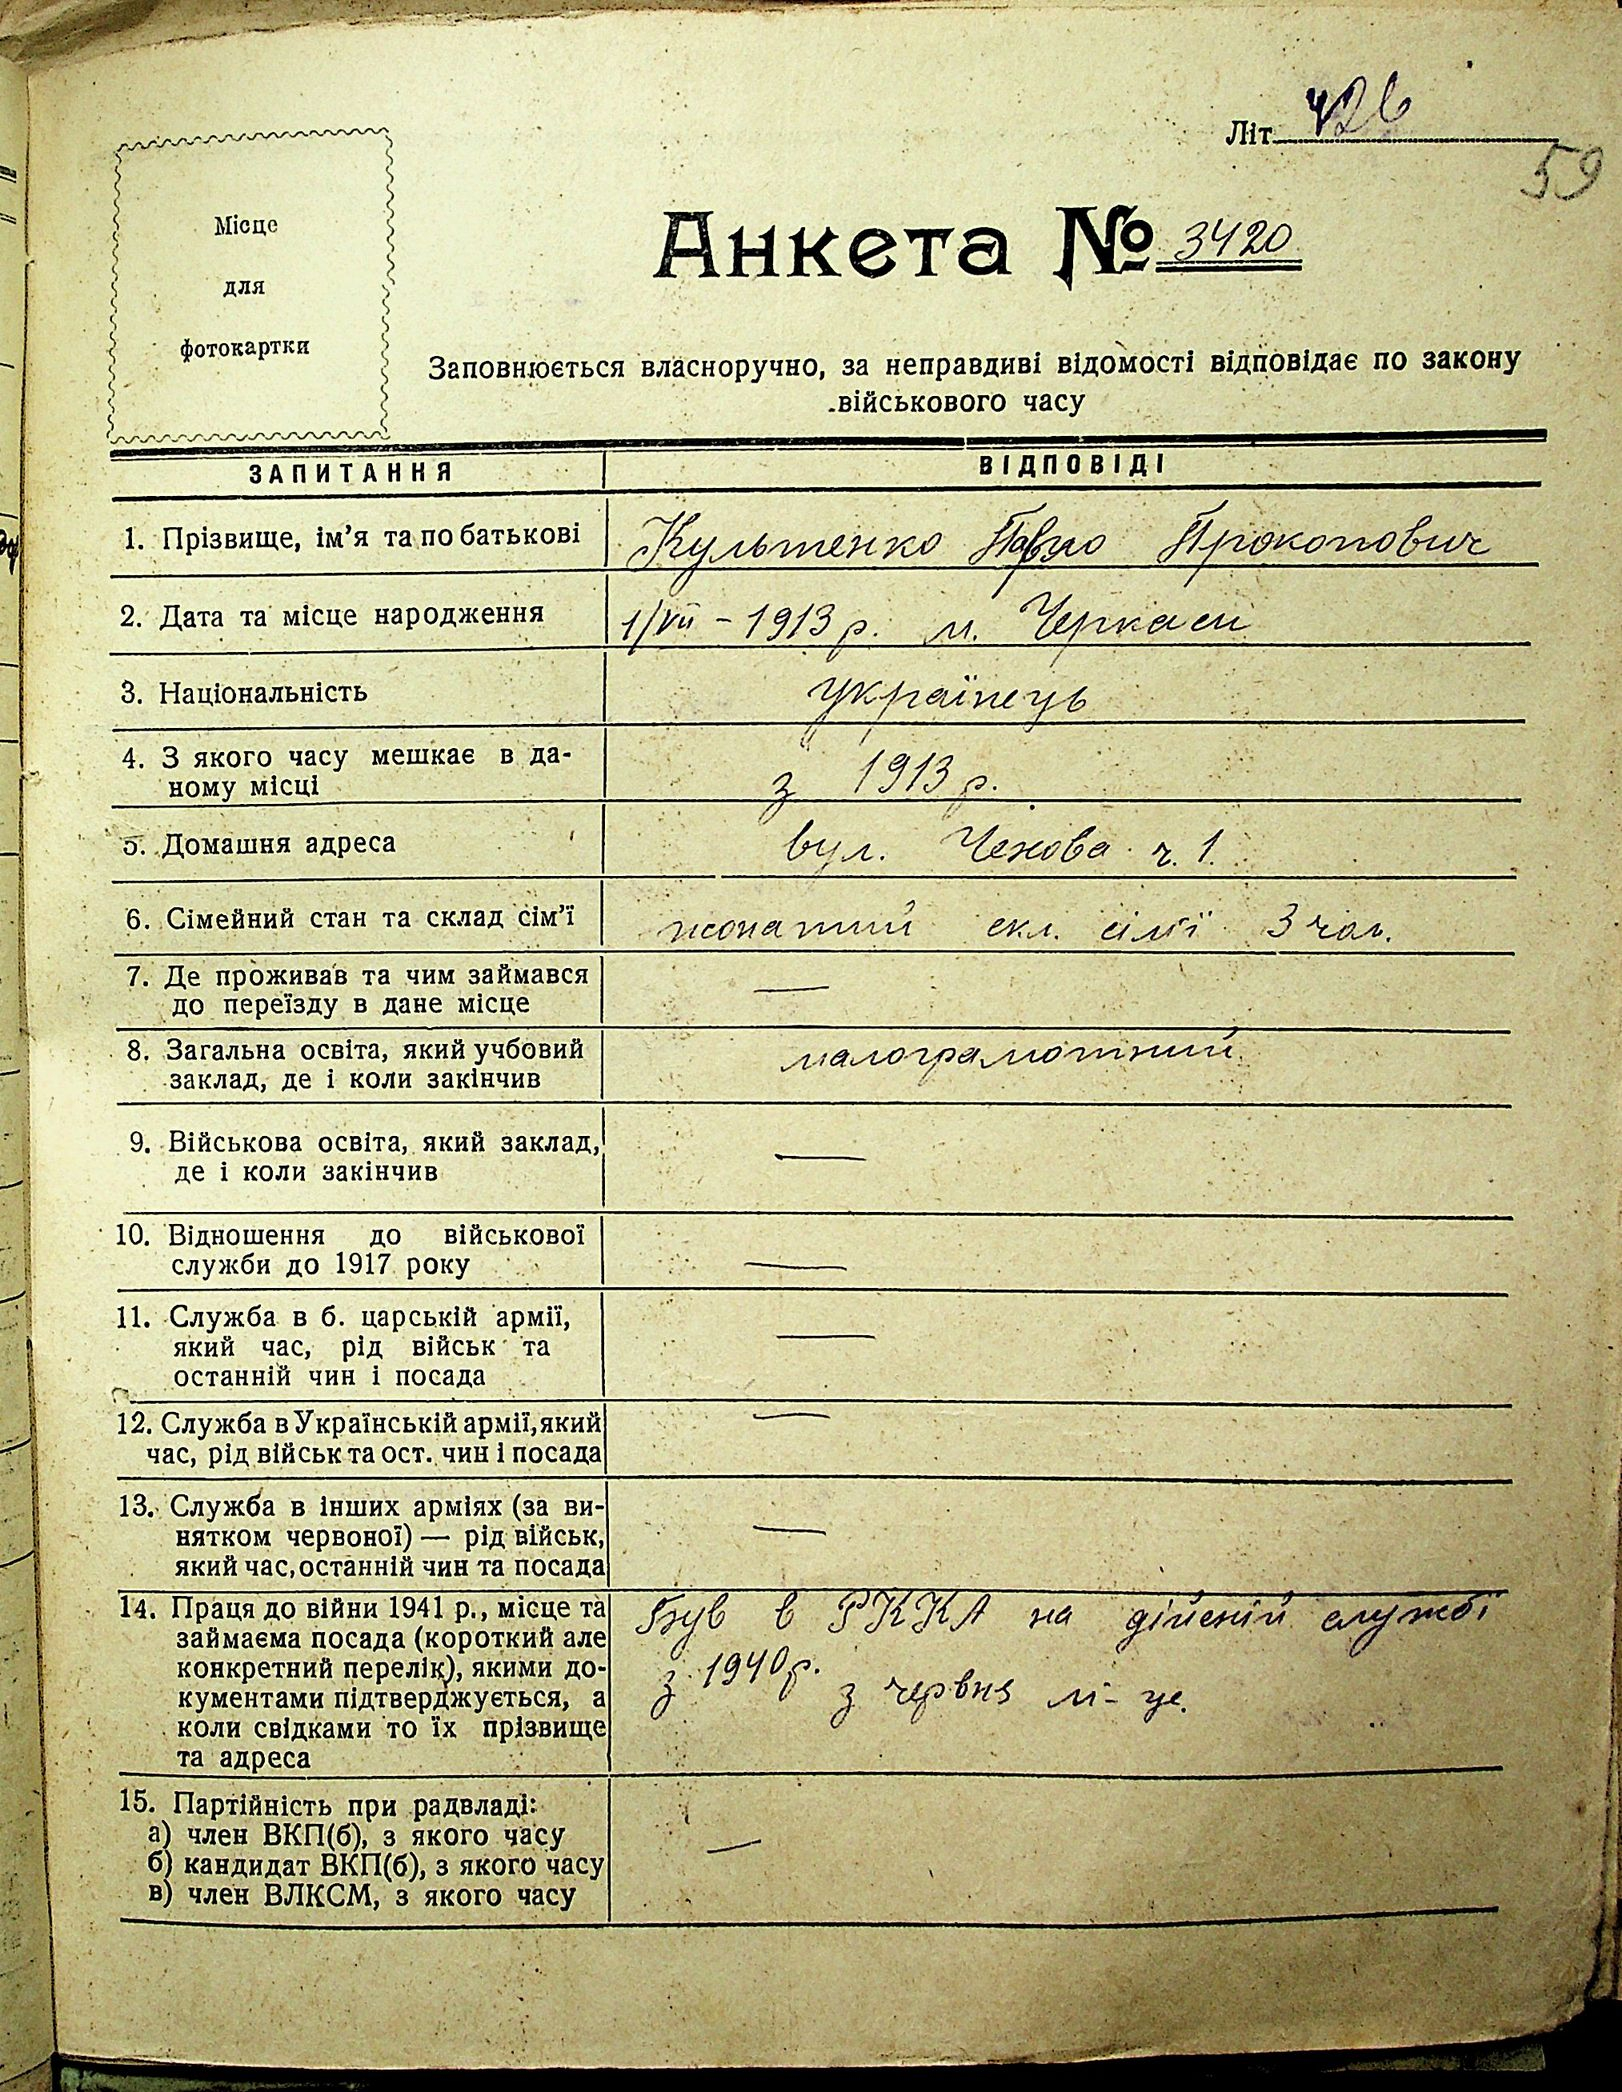 Літ. 426
59
Місце
для
фотокартки
Анкета № 3420
Заповнюється власноручно, за неправдиві відомості відповідає по закону
військового часу
ЗАПИТАННЯ ВІДПОВІДІ
1. Прізвище, ім’я та по батькові Культенко Павло Прокопович
2. Дата та місце народження 1/VII – 1913 р. м. Черкаси
3. Національність українець
4. З якого часу мешкає в да-
ному місці з 1913 р.
5. Домашня адреса вул. Чехова ч. 1.
6. Сімейний стан та склад сім’ї жонатий скл. сім'ї 3 чол.
7. Де проживав та чим займався
до переїзду в дане місце —
8. Загальна освіта, який учбовий малограмотний
заклад, де і коли закінчив
9. Військова освіта, який заклад, —
де і коли закінчив
10. Відношення до військової
служби до 1917 року —
11. Служба в б. царській армії,
який час, рід військ та —
останній чин і посада
12. Служба в Українській армії, який —
час, рід військ та ост. чин і посада
13. Служба в інших арміях (за ви-
нятком червоної) — рід військ, —
який час, останній чин та посада
14. Праця до війни 1941 р., місце та Був в РККА на дійсній службі
займаєма посада (короткий але
конкретний перелік), якими до- з 1940 р.
кументами підтверджується, а з червня м-це.
коли свідками то їх прізвище
та адреса
15. Партійність при радвладі:
а) член ВКП(б), з якого часу —
б) кандидат ВКП(б), з якого часу
в) член ВЛКСМ, з якого часу